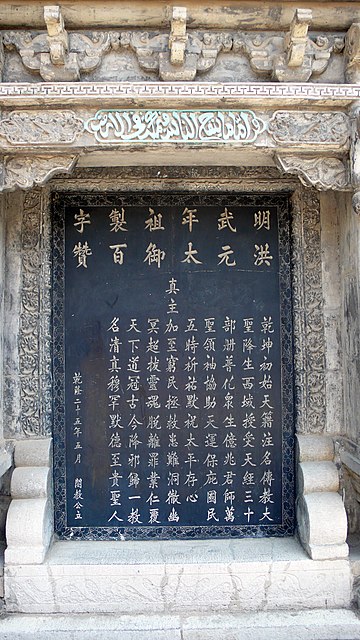 明洪
武元
年太
祖御
製百
字贊
乾坤初始天籍注名傳教大
聖降生西域授受天經三十
部冊普化衆生億兆君師萬
聖領袖協助天運保庇國民
五時祈祐默祝太平存心
真主加至窮民拯救患難洞徹幽
冥超拔靈魂脫離罪業仁覆
天下道冠古今降邪歸一教
名清真穆罕默德至貴聖人
乾隆二十五年五月 闔教公立